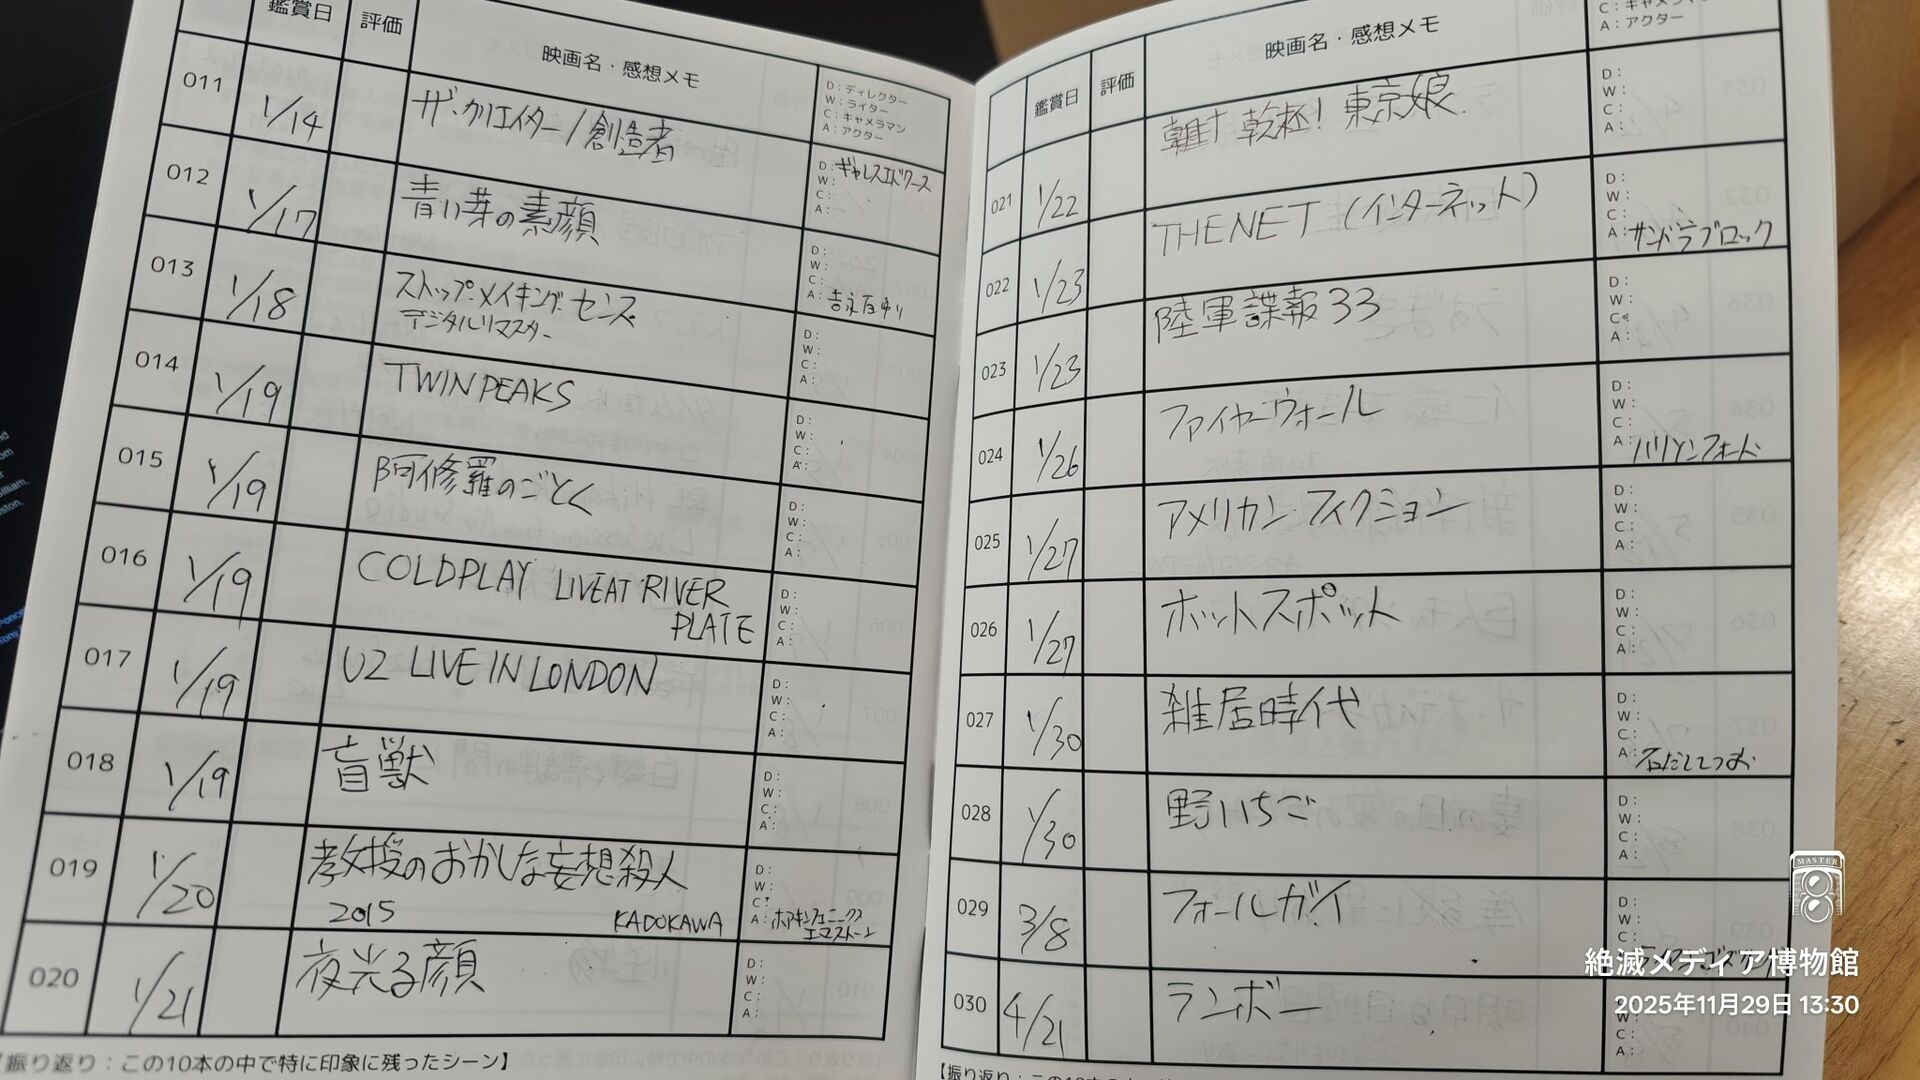 鑑賞日
評価
映画名・感想メモ
D：ディレクター
W：ライター
C：キャメラマン
A：アクター
011
1/14
ザ・クリエイター/創造者
D：ギャレスエドワース
W：
C：
A：
012
1/17
青い芽の素顔
D：
W：
C：
A：吉永さゆり
013
1/18
ストップ・メイキング・センス
デジタルリマスター
D：
W：
C：
A：
014
1/19
TWIN PEAKS
D：
W：
C：
A：
015
1/19
阿修羅のごとく
D：
W：
C：
A：
016
1/19
COLDPLAY LIVE AT RIVER
PLATE
D：
W：
C：
A：
017
1/19
U2 LIVE IN LONDON
D：
W：
C：
A：
018
1/19
盲獣
D：
W：
C：
A：
019
1/20
教授のおかしな妄想殺人
2015 KADOKAWA
D：
W：
C：
A：ホアキンフェニックス
エマストーン
020
1/21
夜光る顔
D：
W：
C：
A：
【振り返り：この10本の中で特に印象に残ったシーン】
鑑賞日
評価
映画名・感想メモ
C：キャメラマン
A：アクター
021
1/22
乾杯！東京娘
D：
W：
C：
A：
022
1/23
THE NET（インターネット）
D：
W：
C：
A：サンドラブロック
023
1/23
陸軍諜報33
D：
W：
C：
A：
024
1/26
ファイヤーウォール
D：
W：
C：
A：ハリソンフォード
025
1/27
アメリカン・フィクション
D：
W：
C：
A：
026
1/27
ホットスポット
D：
W：
C：
A：
027
1/30
雑居時代
D：
W：
C：
A：
028
1/30
野いちご
D：
W：
C：
A：
029
3/8
フォールガイ
D：
W：
C：
030
4/21
ランボー
W：
C：
A：
【振り返り：この10本の
MASTER
絶滅メディア博物館
2025年11月29日 13:30